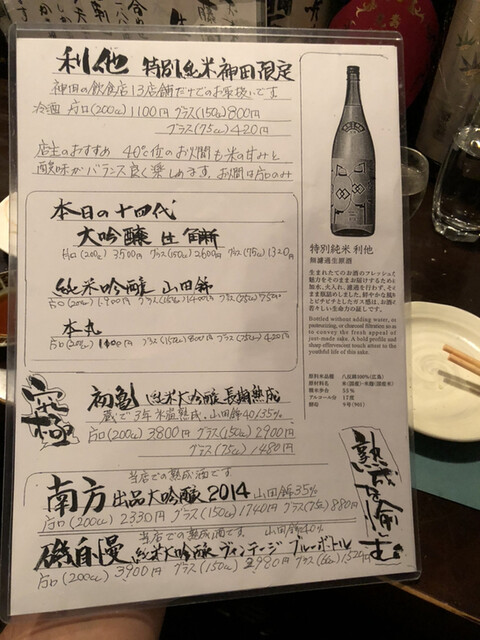 利他 特別純米 神田限定
神田の飲食店13店舗だけでのお取扱いです
冷酒 片口(200cc) 1100円 グラス(150cc) 800円
グラス(75cc) 420円
店主のおすすめ 40℃位のお燗も米の甘みと
酸味がバランス良く楽しめます。お燗は片口のみ
本日の十四代
大吟醸 生
片口(200cc) 3500円 グラス(150cc) 2600円 グラス(75cc) 1320円
純米吟醸 山田錦
片口(200cc) 1900円 グラス(150cc) 1400円 グラス(75cc) 750円
本丸
片口(200cc) 1100円 グラス(150cc) 800円 グラス(75cc) 420円
究極
初亀 純米大吟醸 長期熟成
蔵で3年氷温熟成、山田錦40/35%
片口(200cc) 3800円 グラス(150cc) 2900円
グラス(75cc) 1480円
当店での熟成酒です
南方 出品大吟醸 2014 山田錦35%
片口(200cc) 2330円 グラス(150cc) 1740円 グラス(75cc) 880円
当店での熟成酒です。 山田錦40%
磯自慢 純米大吟醸 ヴィンテージ ブルーボトル
片口(200cc) 3900円 グラス(150cc)
熟成を愉しむ
特別純米 利他
無濾過生原酒
生まれたてのお酒のフレッシュで
魅力をそのままお届けするために
加水、火入れ、濾過を行わず、そのま
ま瓶詰めしました。鮮やかな香りと
ピチピチとしたガス感は、お酒が
若々しい生命力の証しです。
Bottled without adding water, or
pasteurizing, or charcoal filtration so as
to convey the fresh appeal of
just-made sake. A bold profile and
sharp effervescent touch attest to the
youthful life of this sake.
原料米品種 八反錦100%(広島)
原材料名 米(国産)・米麹(国産米)
精米歩合 55%
アルコール分 17度
酵母 9号(901)